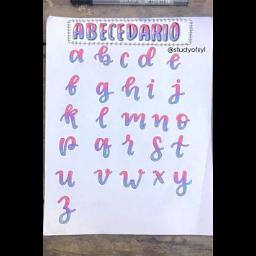 ABECEDARIO
@studyofsyl
a b c d e
f g h i j
k l m n o
p q r s t
u v w x y
z